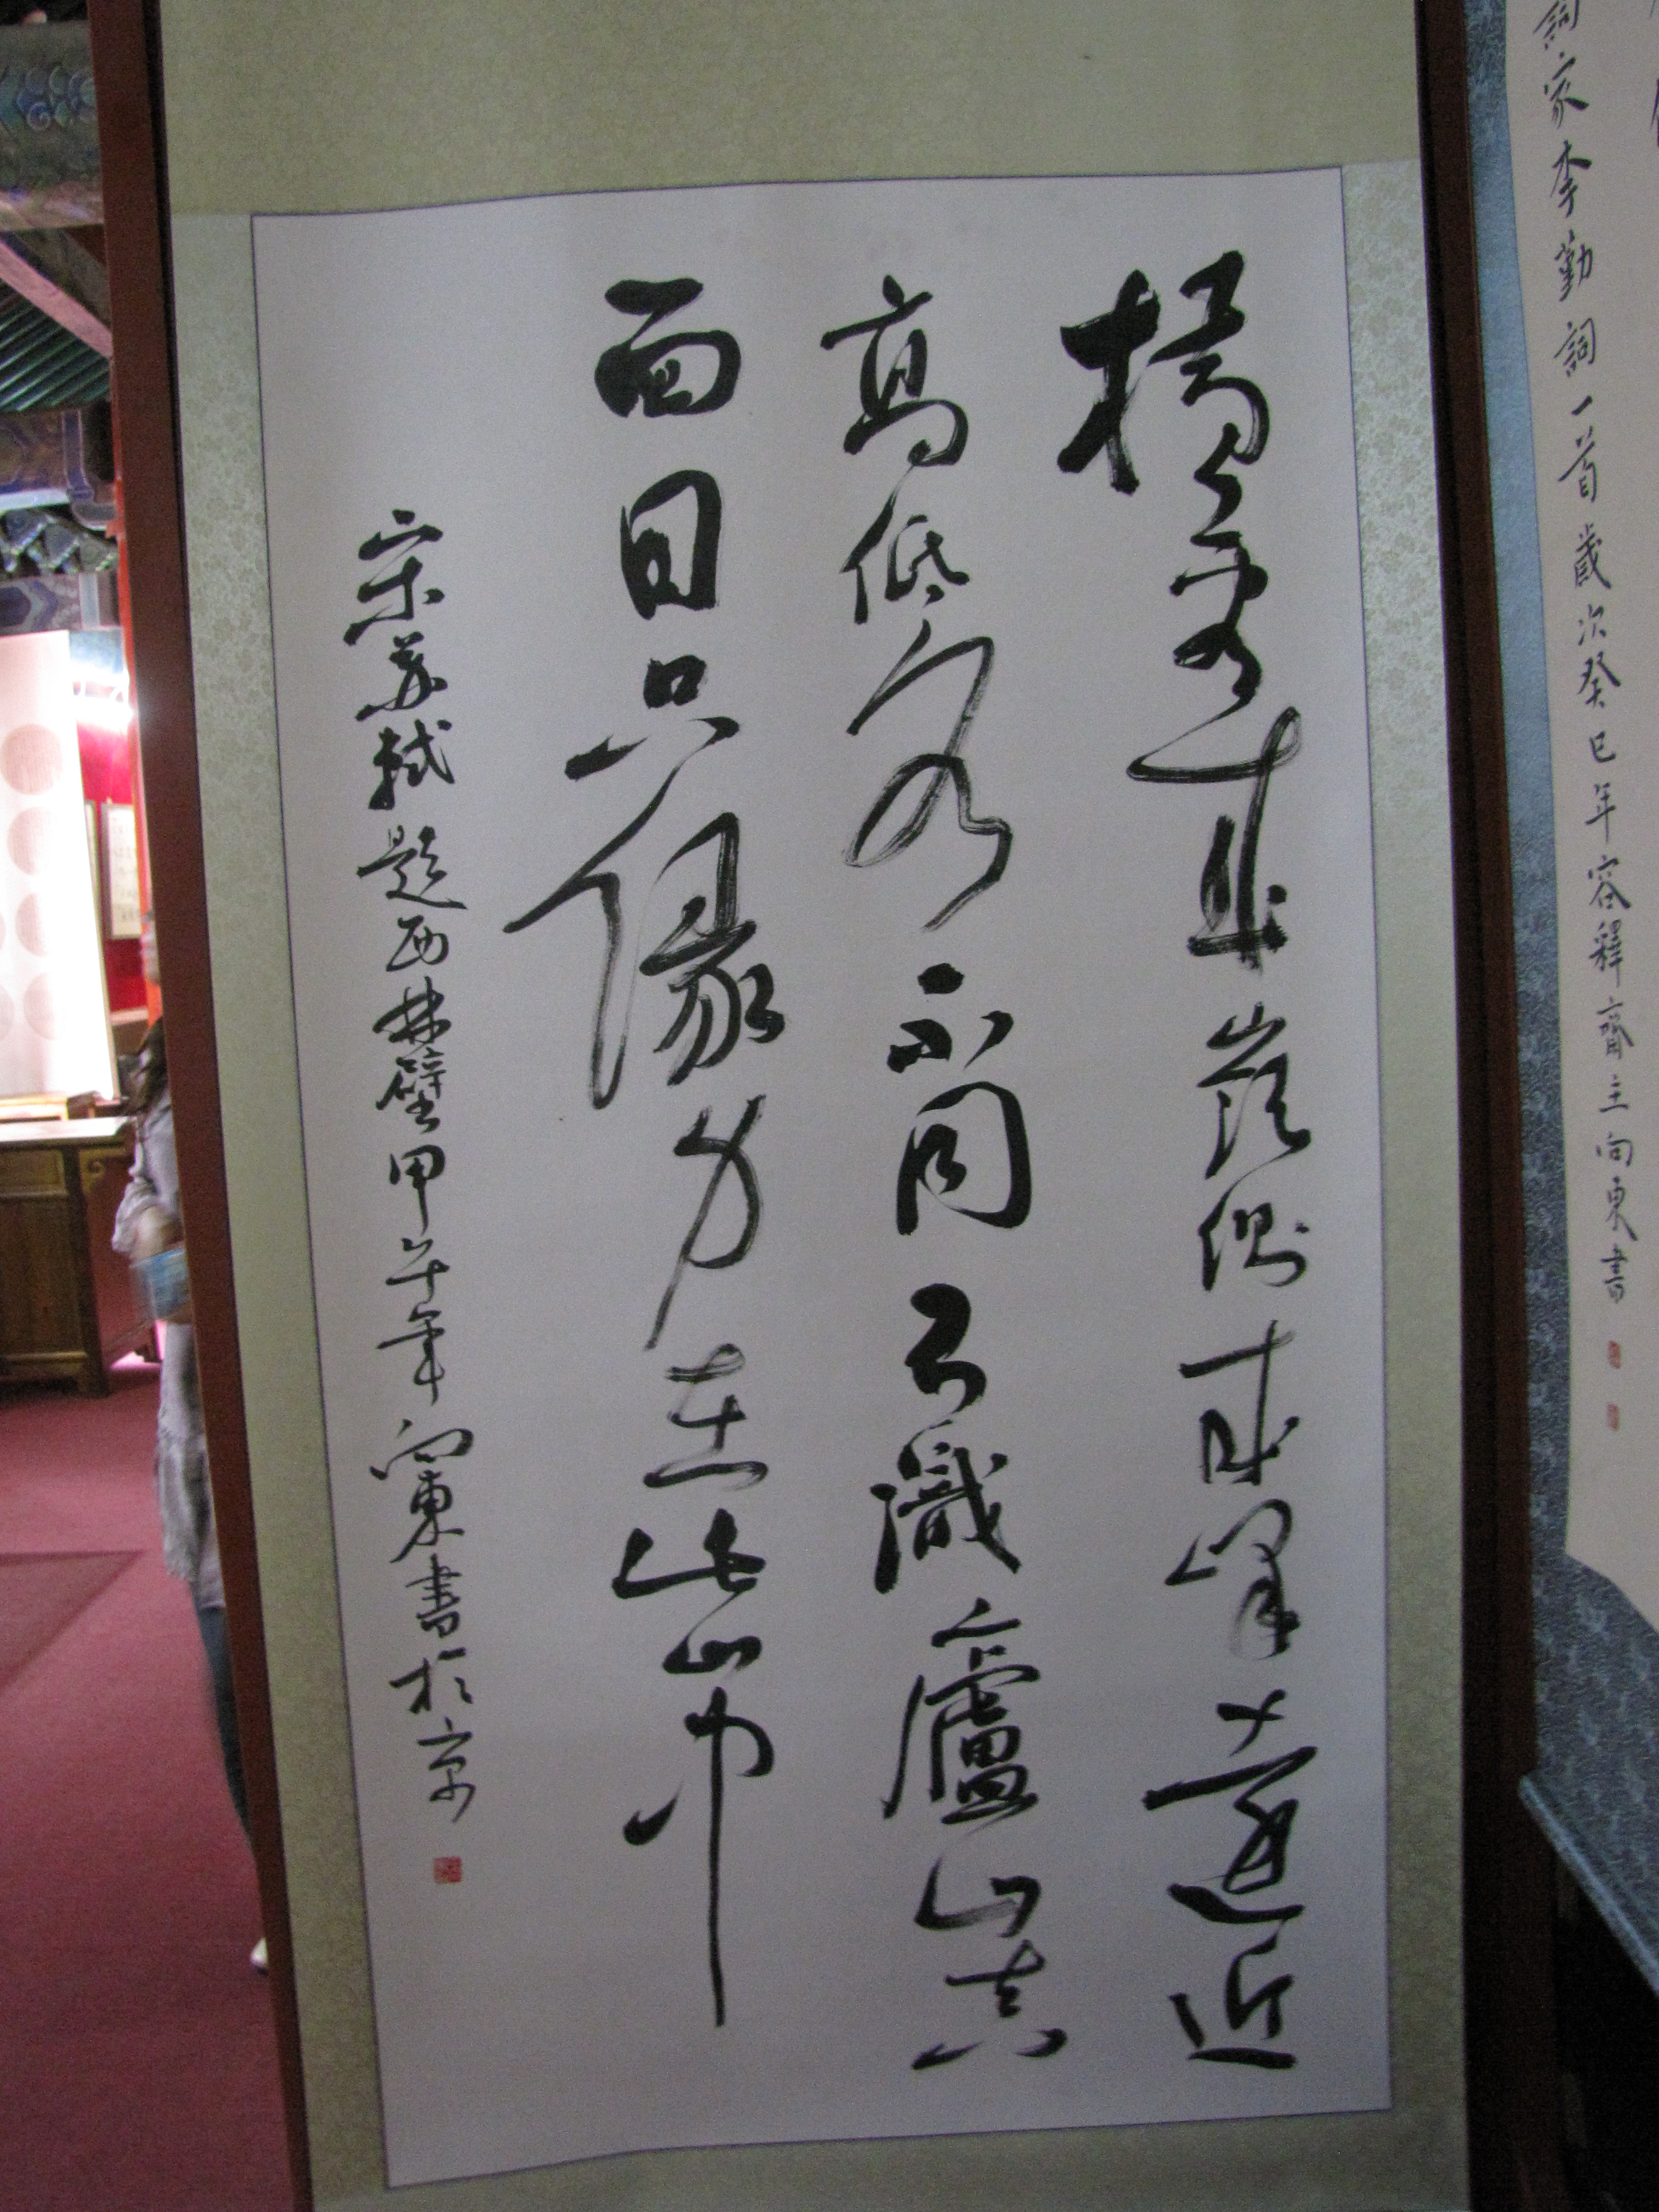 詞家李勤詞一首歲次癸巳年容釋齋主向東書
橫看成嶺側成峰遠近
高低各不同不識廬山真
面目只緣身在此山中
宋蘇軾題西林壁甲午年向東書於京